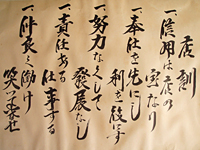 店訓
一、信用は店の
宝なり
一、奉仕を先にし
利を後にす
一、努力なくして
発展なし
一、責任ある
仕事する
一、仲良く働け
笑って暮せ